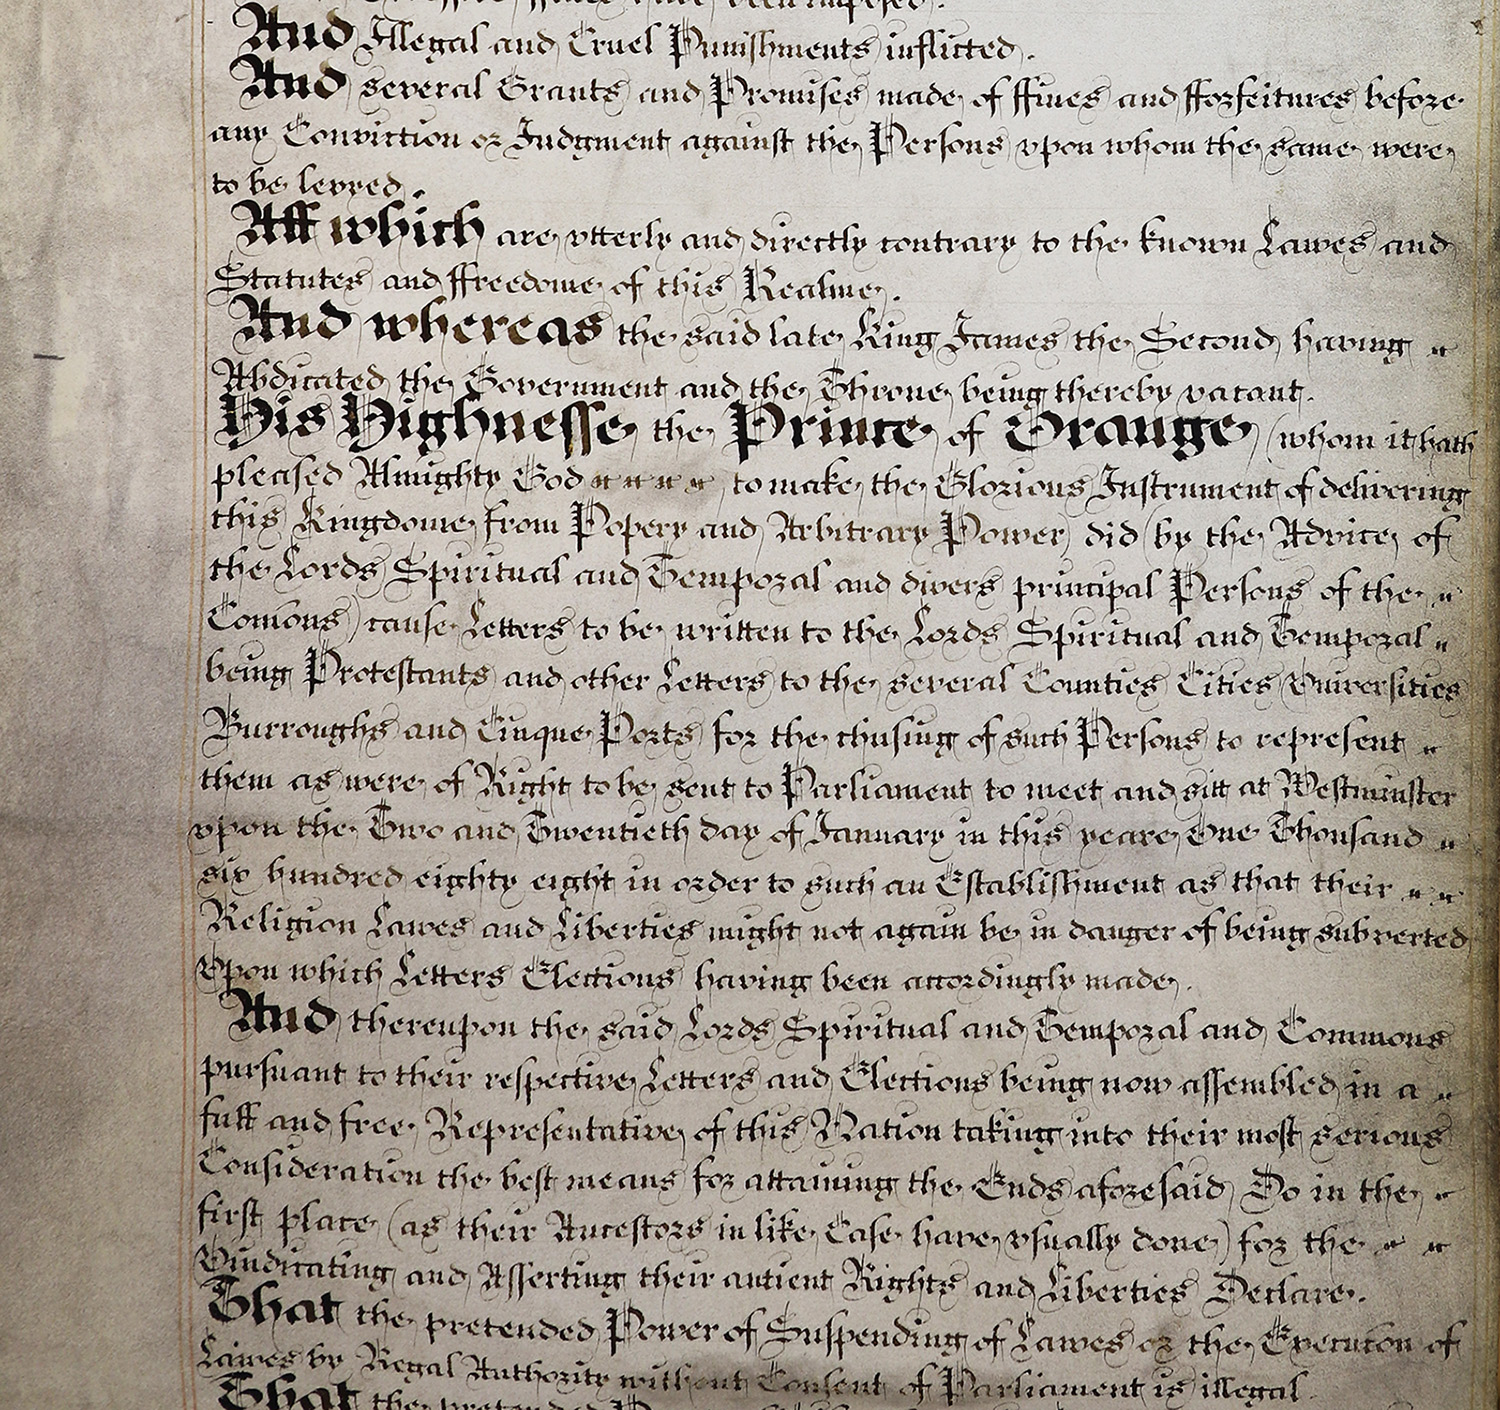 been imposed.
And Illegal and Cruel Punishments inflicted.
And several Grants and Promises made of ffines and fforfeitures before
any Conviction or Judgment against the Persons vpon whom the same were
to be levyed.
All which are vtterly and directly contrary to the known Lawes and
Statutes and ffreedome of this Realme.
And whereas the said late King James the Second having
Abdicated the Government and the Throne being thereby vacant.
His Highnesse the Prince of Orange (whom it hath
pleased Almighty God to make the Glorious Instrument of delivering
this Kingdome from Popery and Arbitrary Power) did (by the Advice of
the Lords Spiritual and Temporal and divers principal Persons of the
Com̄ons) cause Letters to be written to the Lords Spiritual and Temporal
being Protestants and other Letters to the several Counties Cities Vniversities
Burroughs and Cinque Ports for the chusing of such Persons to represent
them as were of Right to be sent to Parliament to meet and sitt at Westminster
vpon the Two and Twentieth day of January in this yeare One Thousand
six hundred eighty eight in order to such an Establishment as that their
Religion Lawes and Liberties might not again be in danger of being subverted
Vpon which Letters Elections having been accordingly made.
And thereupon the said Lords Spiritual and Temporal and Commons
pursuant to their respective Letters and Elections being now assembled in a
full and free Representative of this Nation taking into their most serious
Consideration the best means for attaining the Ends aforesaid Do in the
first place (as their Ancestors in like Case have vsually done) for the
Vindicating and Asserting their antient Rights and Liberties Declare.
That the pretended Power of Suspending of Lawes or the Execution of
Lawes by Regal Authority without Consent of Parliament is illegal.
That the pretended